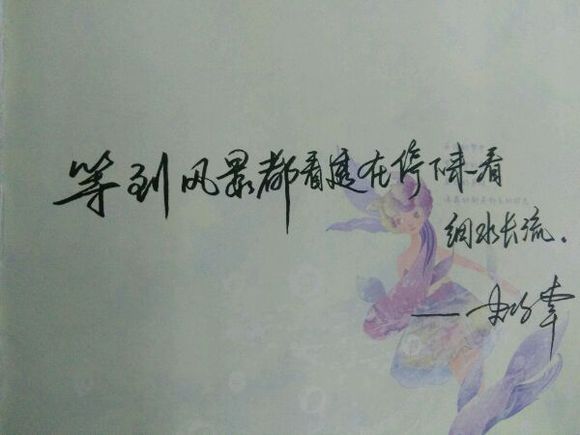 等到风景都看透在停下来看
细水长流.